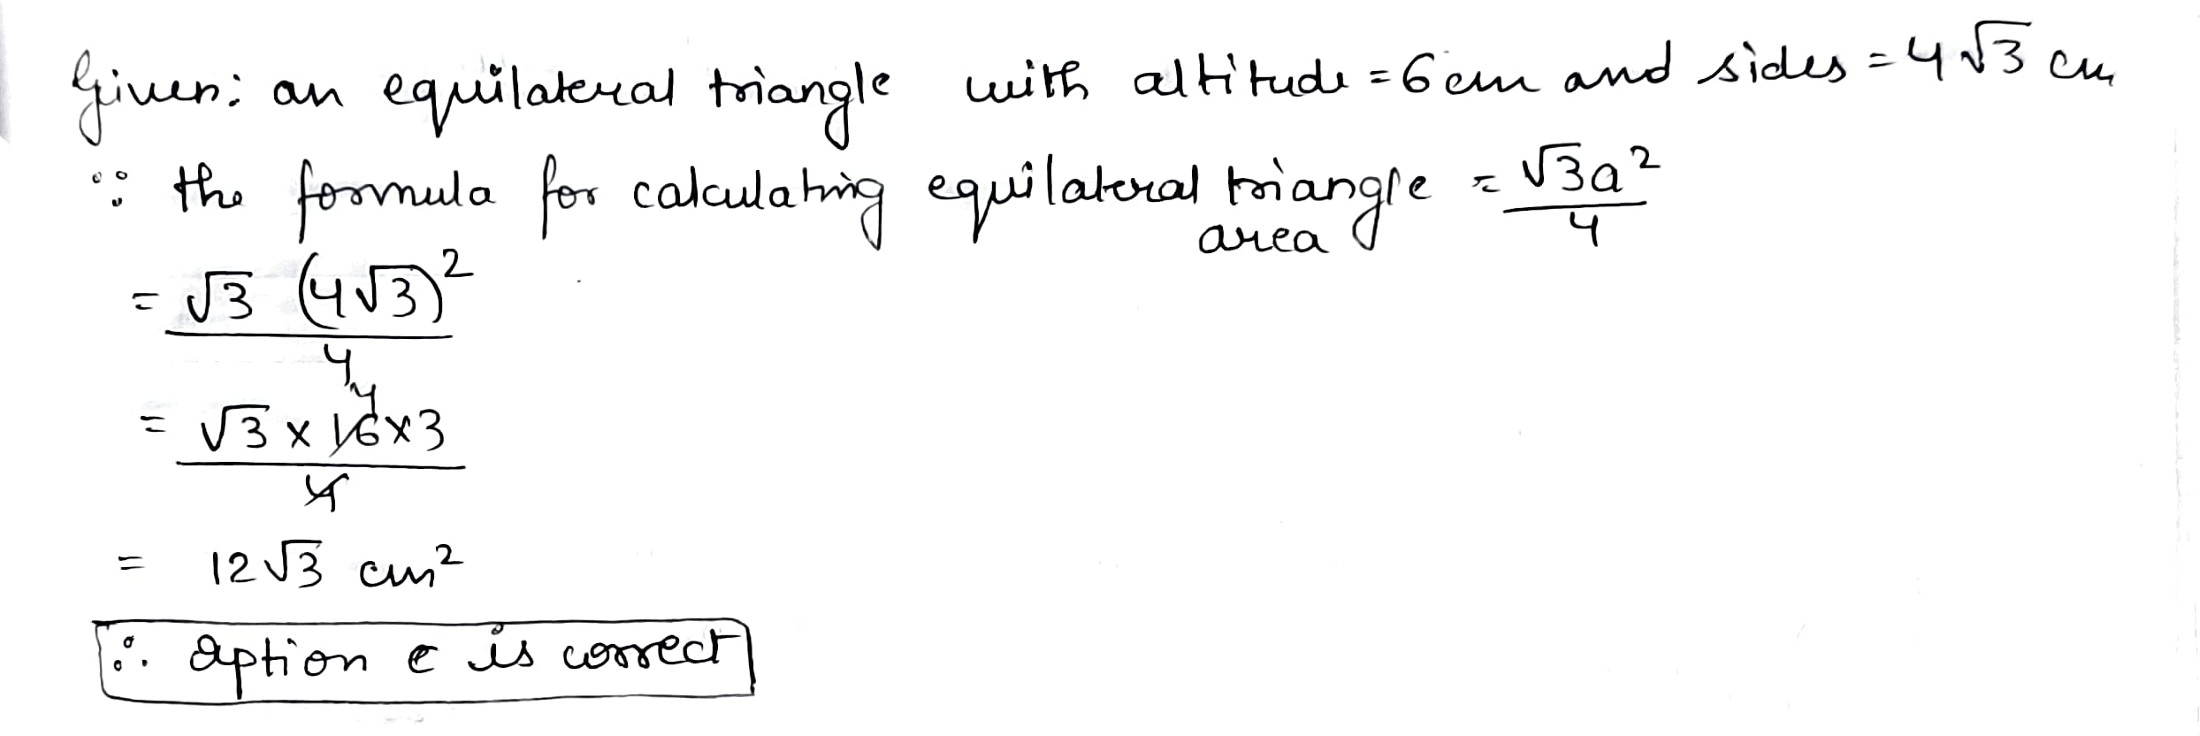 Given: an equilateral triangle with altitude = 6 cm and sides = 4√3 cm
∵ the formula for calculating equilateral triangle area = √3a²/4
= √3 (4√3)²/4
= √3 × 16 × 3/4 4
= 12√3 cm²
∴ option c is correct